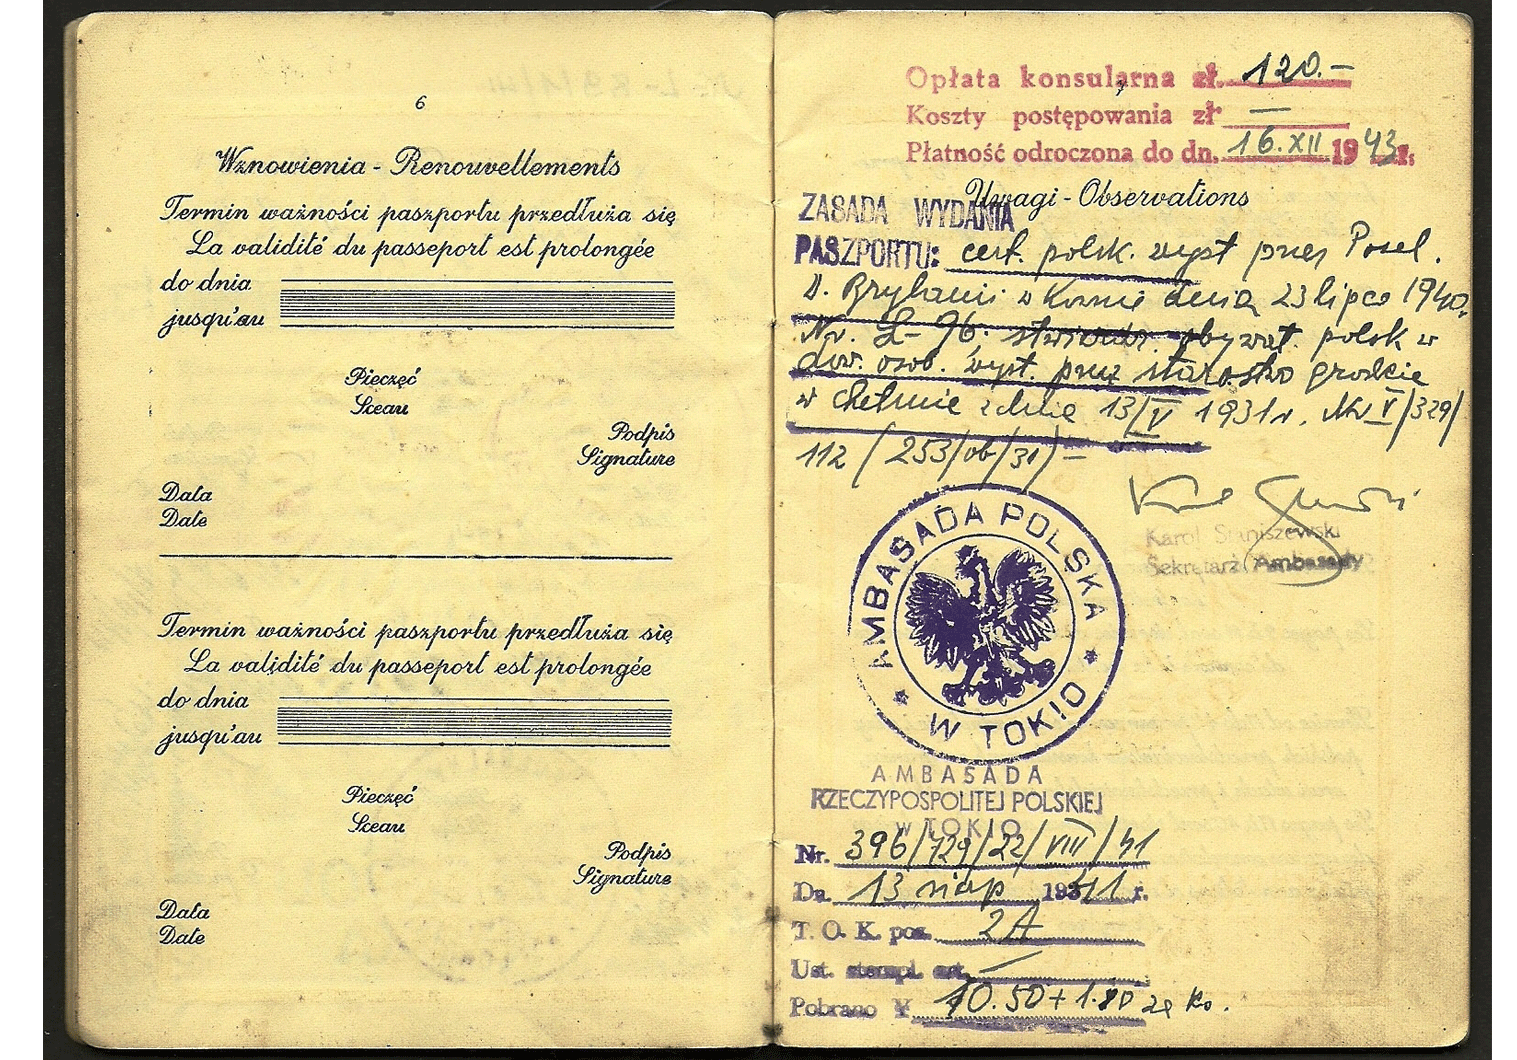 6
Wznowienia - Renouvellements
Termin ważności paszportu przedłuża się
La validité du passeport est prolongée
do dnia
jusqu'au
Pieczęć
Sceau
Podpis
Signature
Data
Date
Termin ważności paszportu przedłuża się
La validité du passeport est prolongée
do dnia
jusqu'au
Pieczęć
Sceau
Podpis
Signature
Data
Date
Opłata konsularna zł. 120.-
Koszty postępowania zł —
Płatność odroczona do dn. 16.XII 1943 r.
Uwagi - Observations
ZASADA WYDANIA
PASZPORTU: cert. polsk. wyst przez Posel.
W. Brytanii w Kownie dnia 23 lipca 1940.
Nr. L-96. obywat. polsk w
dow. osob. wyst. przez starostwo grodzkie
w Chełmie z dnia 13/V 1931 r. Nr V/329/
112 /253/ob/31/ —
Karol Staniszewski
Sekretarz Ambasady
AMBASADA POLSKA
W TOKIO
AMBASADA
RZECZYPOSPOLITEJ POLSKIEJ
w TOKIO
Nr. 396/729/22/VIII/41
Dn. 13 sierp 1941 r.
T. O. K. poz. 2A
Ust. stempl. art. —
Pobrano ¥ 10.50 + 1.80 za Ko.